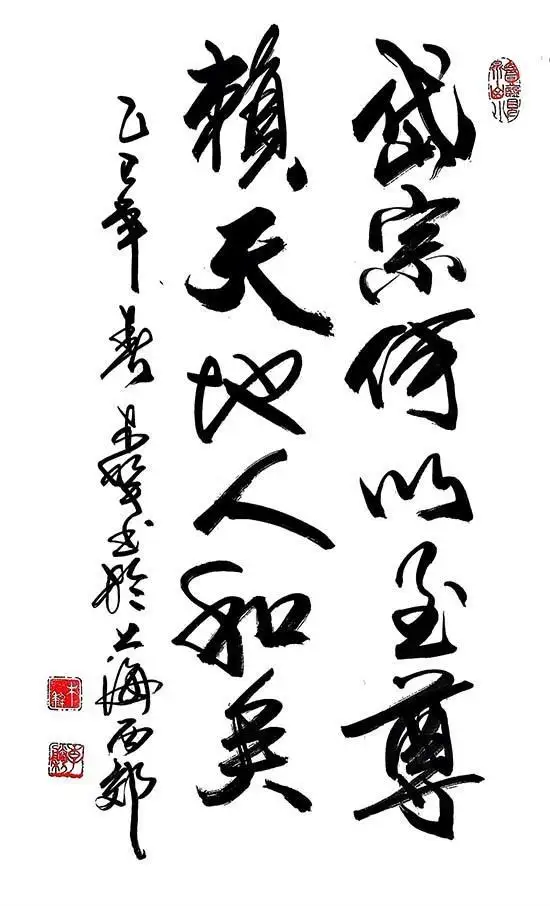 岱宗何以至尊
賴天地人和矣
乙巳年春书於上海西郊